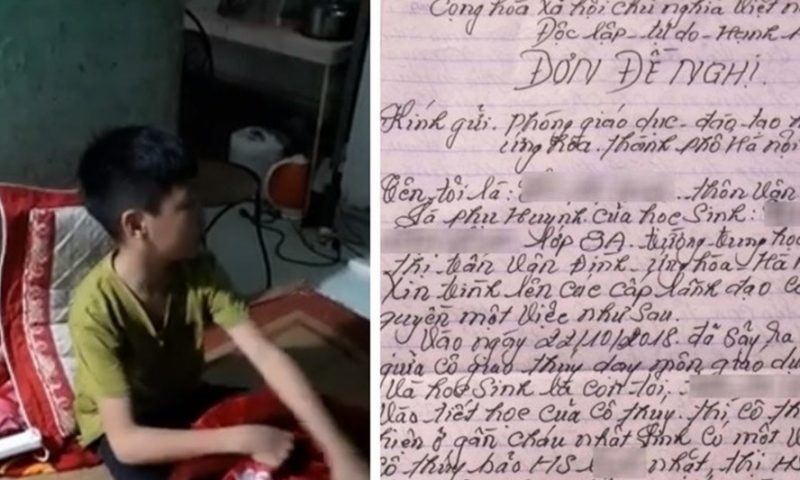 Cộng hòa xã hội chủ nghĩa Việt n
Độc lập - tự do - Hạnh p
ĐƠN ĐỀ NGHỊ.
Kính gửi. Phòng giáo dục - đào tạo
ứng hòa. thành phố Hà nội
Tên tôi là: thôn Vân
Là phụ Huynh của học Sinh:
lớp 8A. trường trung học
thị trấn Vân Đình - ứng hòa - Hà
Xin trình lên các cấp lãnh đạo
quyền một Việc như Sau.
Vào ngày 22/10/2018. đã Sảy ra
giữa cô giáo thúy dạy môn giáo dục
Và học Sinh là con tôi,
Vào tiết học của cô thúy. thì cô
hiện ở gần cháu nhất Sinh có một
cô thúy bảo HS nhất, thì HS